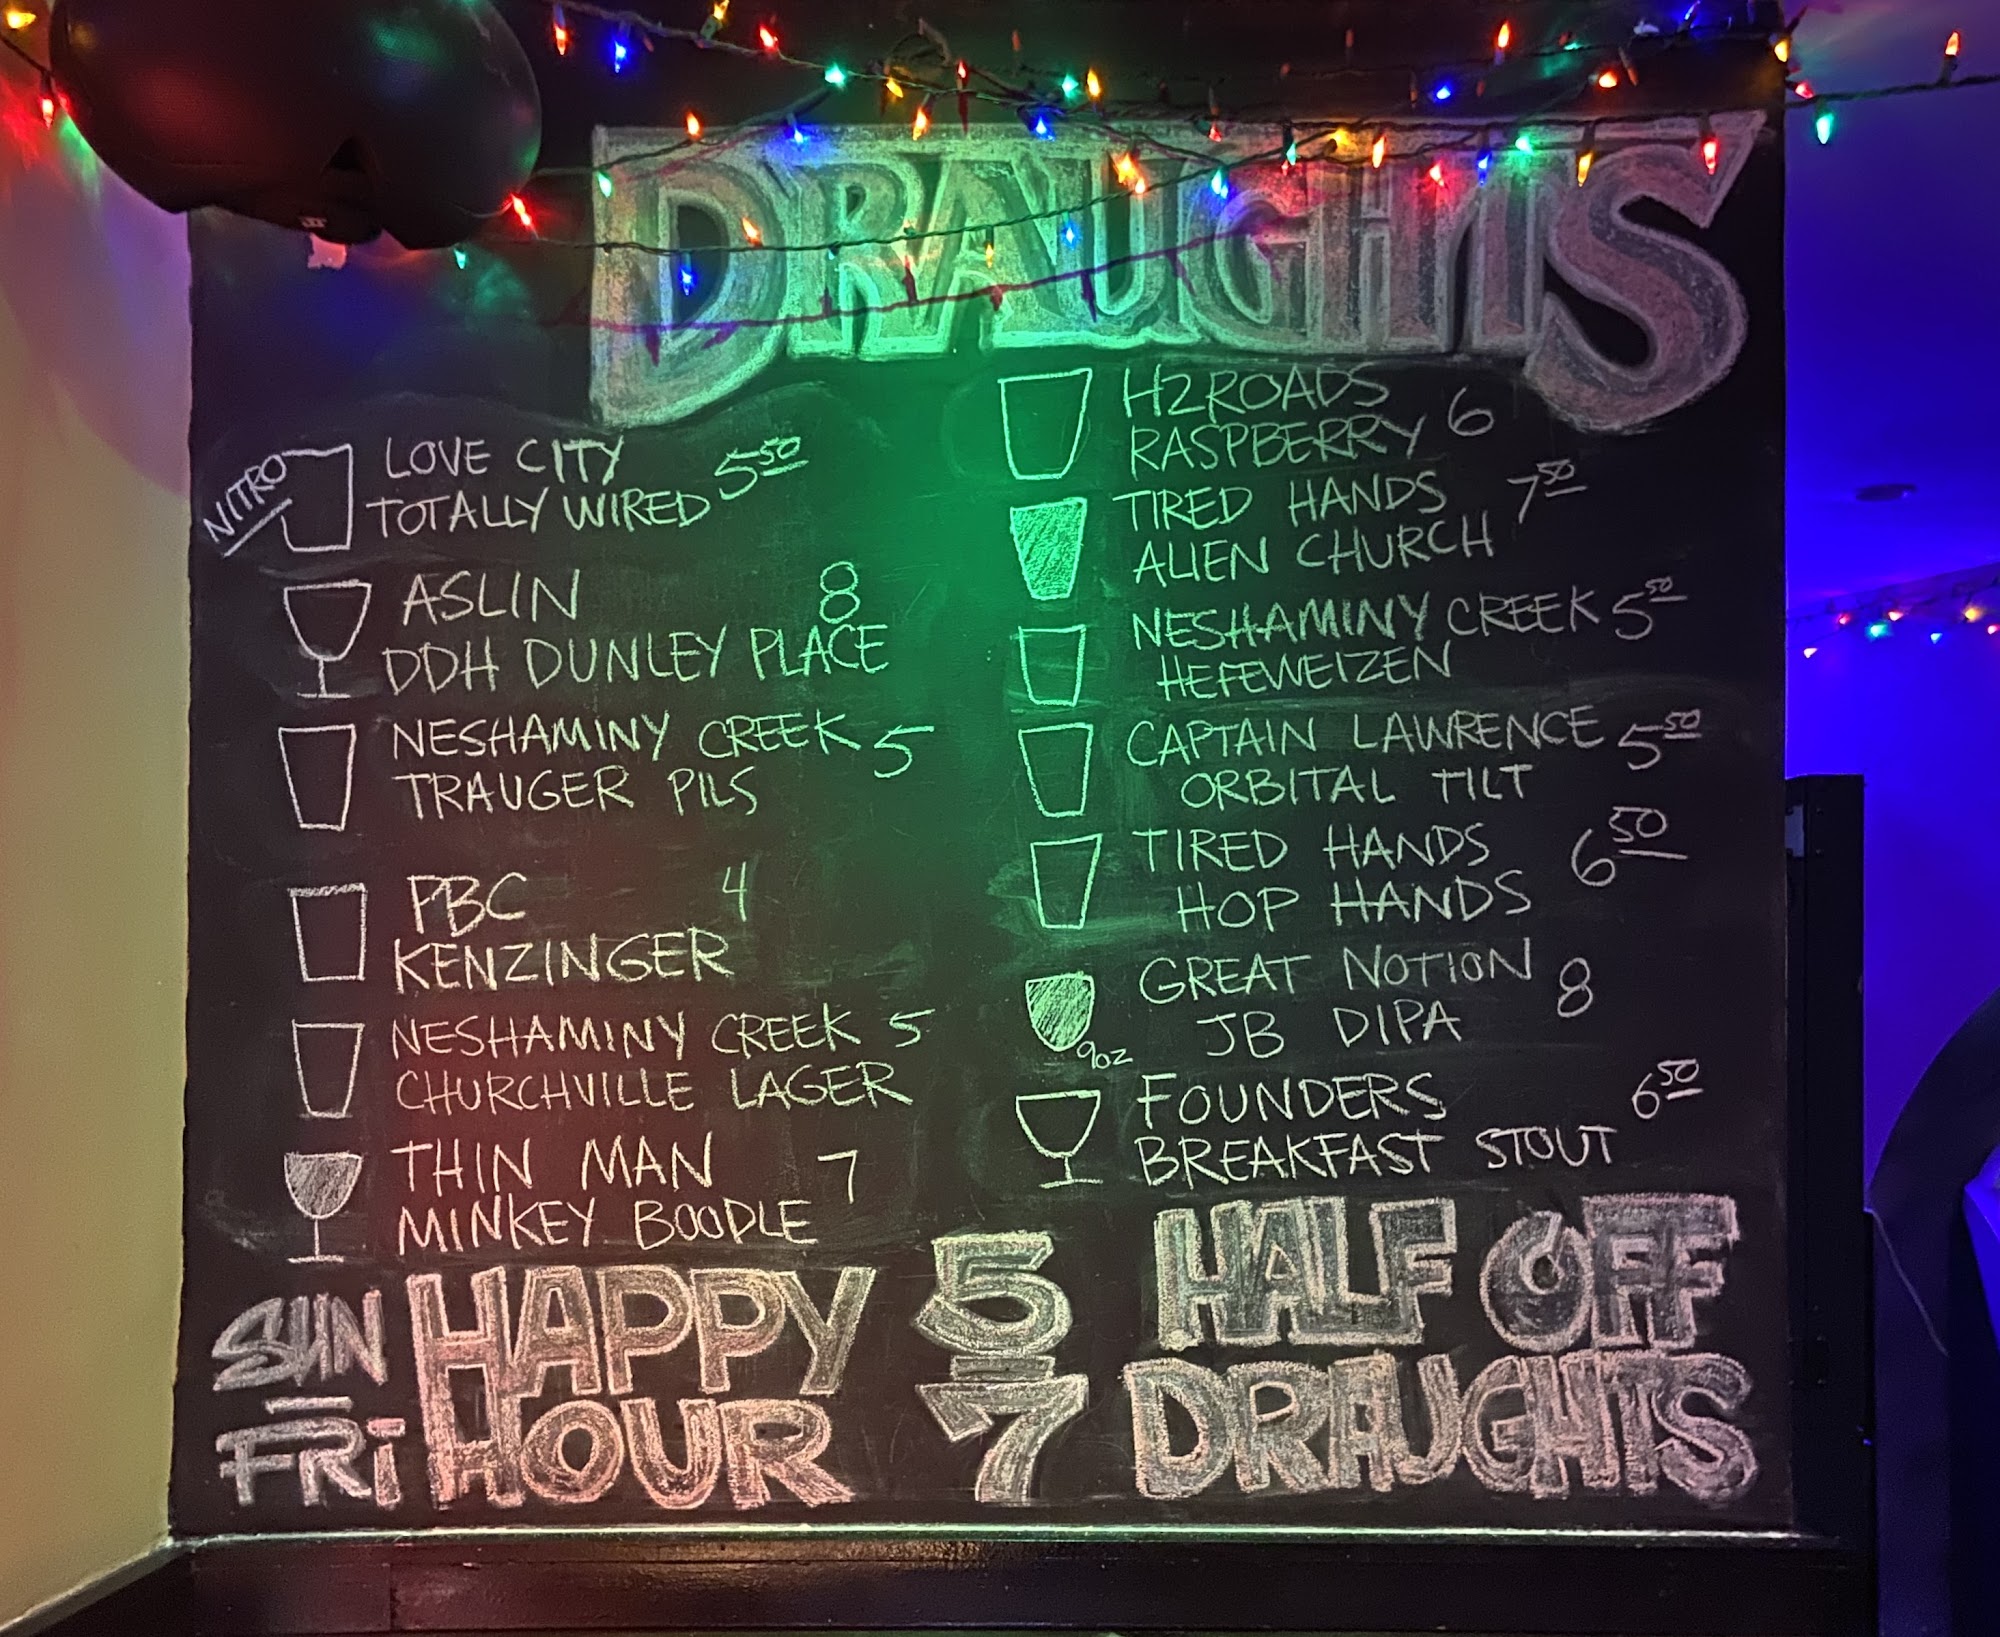 DRAUGHTS
NITRO
LOVE CITY
TOTALLY WIRED 5 50
ASLIN 8
DDH DUNLEY PLACE
NESHAMINY CREEK 5
TRAUGER PILS
PBC 4
KENZINGER
NESHAMINY CREEK 5
CHURCHVILLE LAGER
THIN MAN 7
MINKEY BOODLE
H2ROADS
RASPBERRY 6
TIRED HANDS 7 50
ALIEN CHURCH
NESHAMINY CREEK 5 50
HEFEWEIZEN
CAPTAIN LAWRENCE 5 50
ORBITAL TILT
TIRED HANDS 6 50
HOP HANDS
GREAT NOTION 8
JB DIPA
9OZ
FOUNDERS 6 50
BREAKFAST STOUT
SUN - FRI
HAPPY
HOUR
5 - 7
HALF OFF
DRAUGHTS